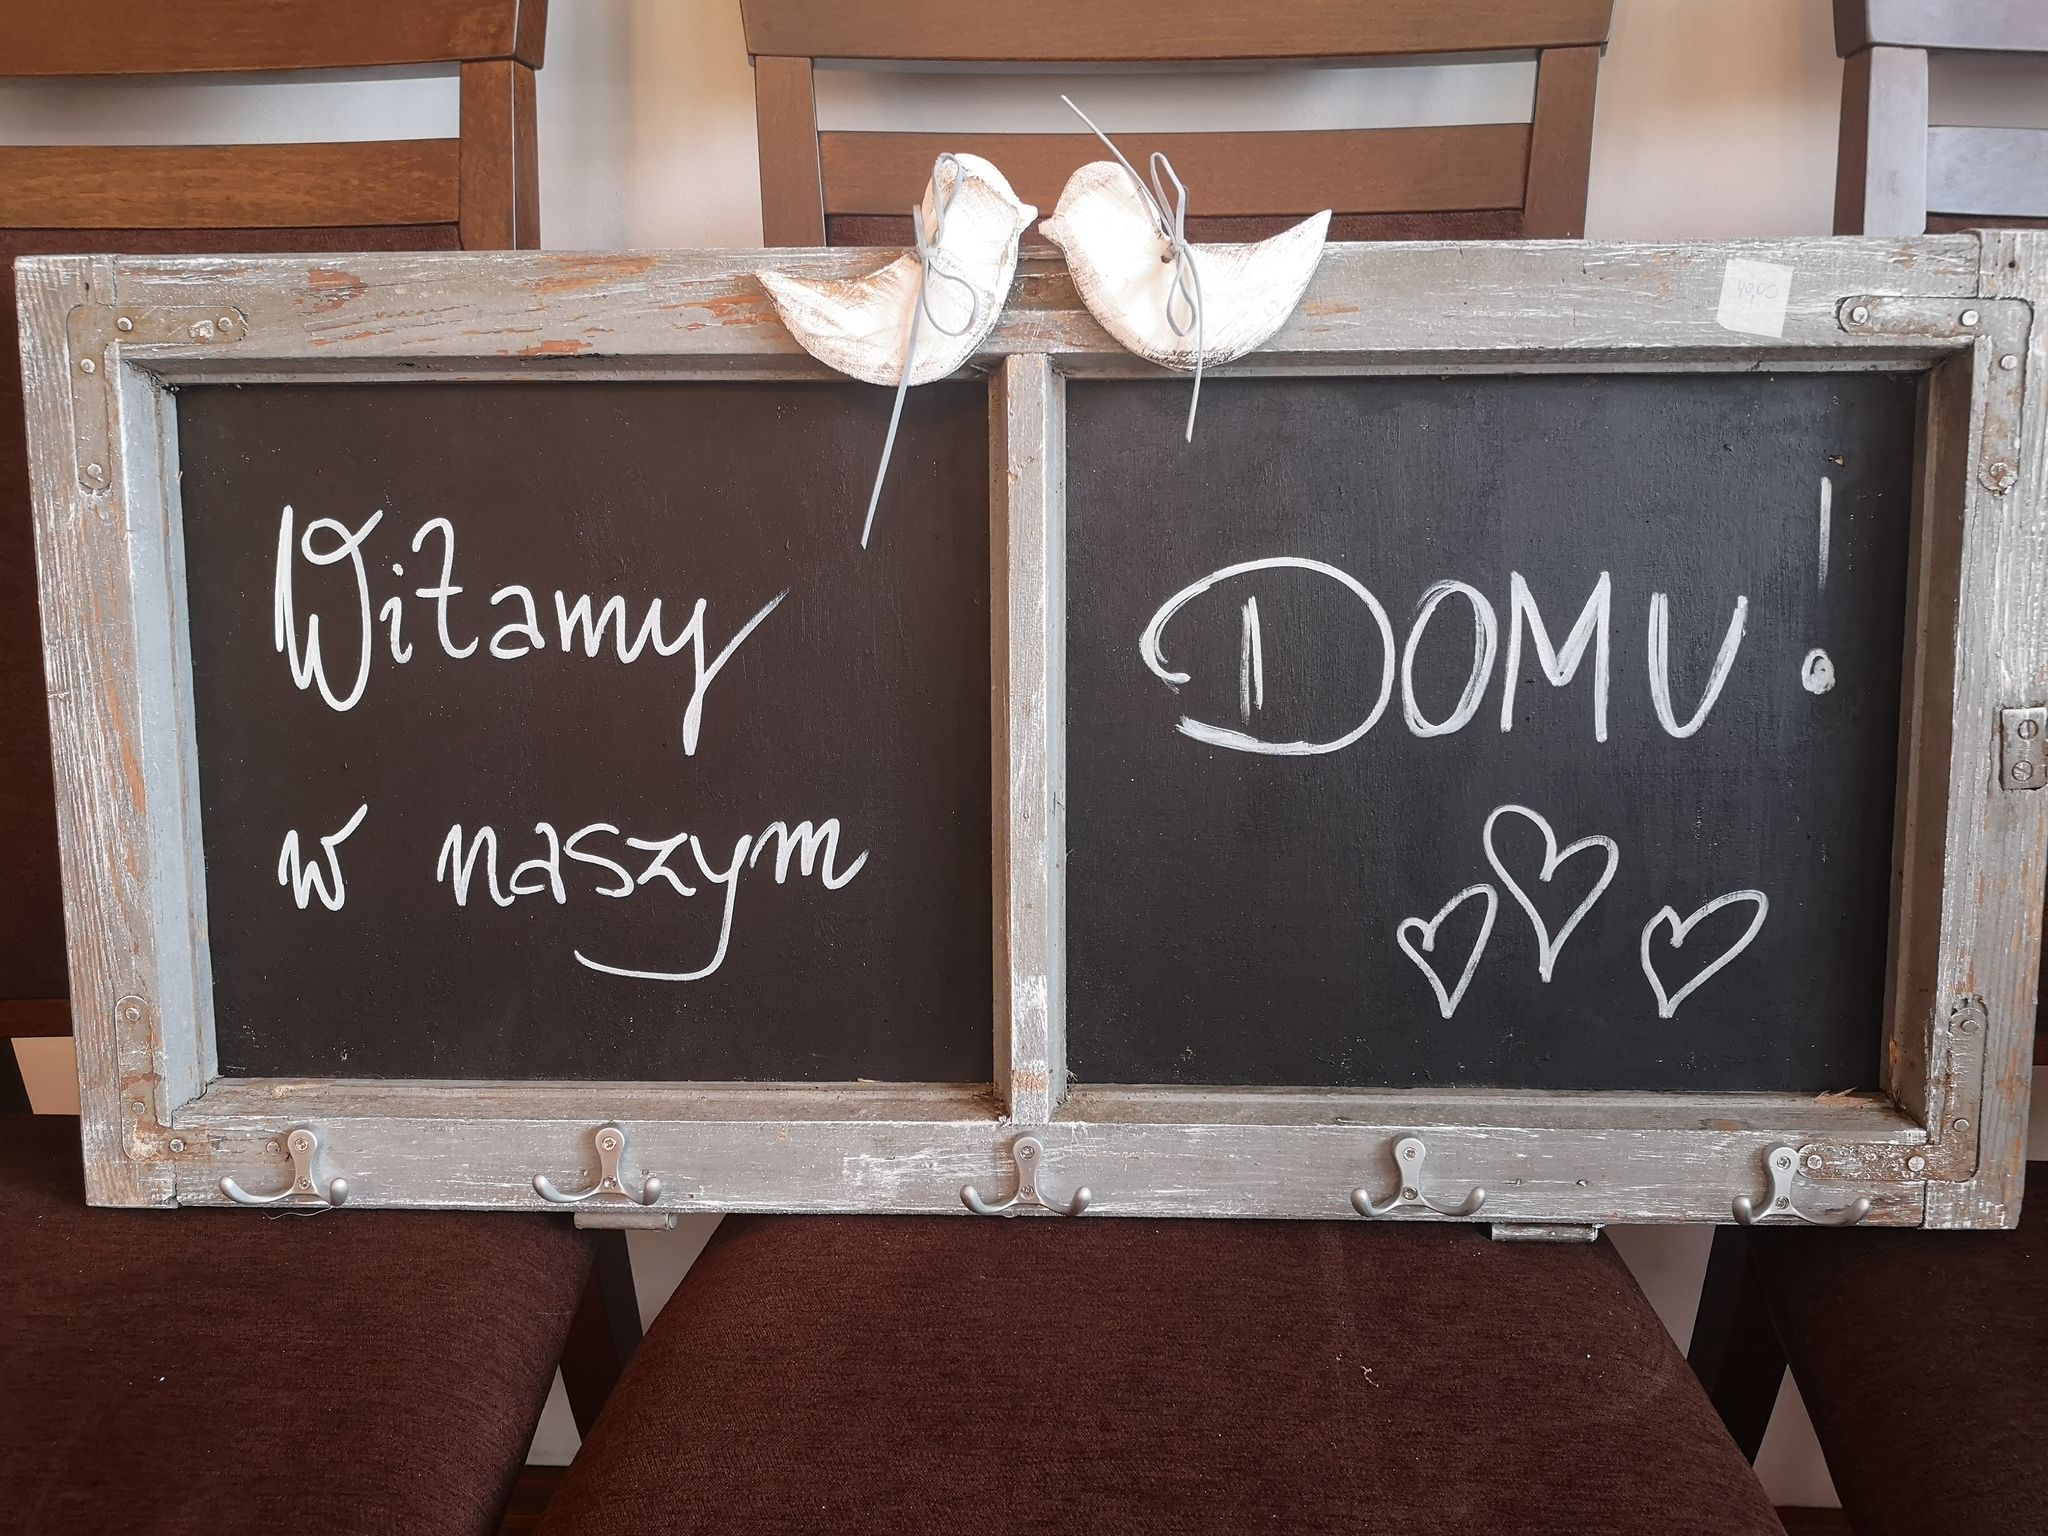 Witamy
w naszym
DOMU!